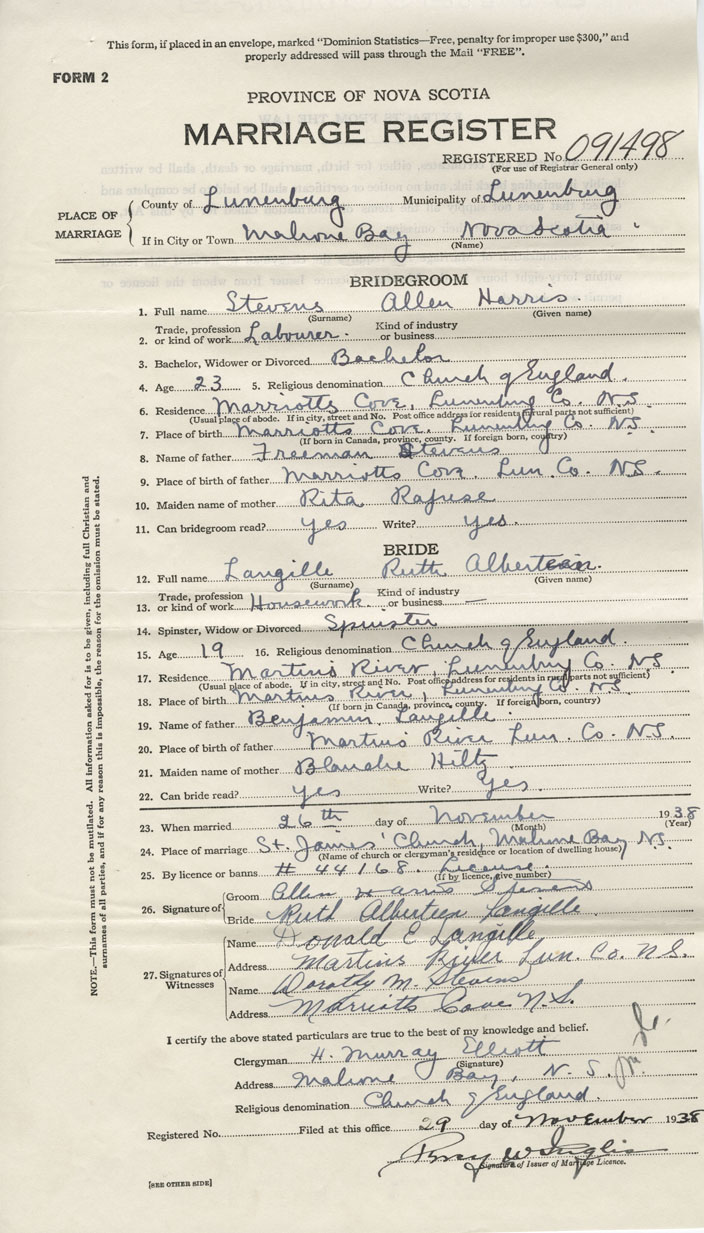 This form, if placed in an envelope, marked "Dominion Statistics—Free, penalty for improper use $300," and
properly addressed will pass through the Mail "FREE".
FORM 2
PROVINCE OF NOVA SCOTIA
MARRIAGE REGISTER
REGISTERED No. 091498
(For use of Registrar General only)
PLACE OF MARRIAGE
County of Lunenburg Municipality of Lunenburg
If in City or Town Mahone Bay Nova Scotia
(Name)
BRIDEGROOM
1. Full name Stevens Allen Harris.
(Surname) (Given name)
2. Trade, profession or kind of work Labourer. Kind of industry or business
3. Bachelor, Widower or Divorced Bachelor
4. Age 23 5. Religious denomination Church of England.
6. Residence Marriotts Cove, Lunenburg Co. N.S.
(Usual place of abode. If in city, street and No. Post office address for residents in rural parts not sufficient)
7. Place of birth Marriotts Cove, Lunenburg Co. N.S.
(If born in Canada, province, county. If foreign born, country)
8. Name of father Freeman Stevens
9. Place of birth of father Marriotts Cove Lun. Co. N.S.
10. Maiden name of mother Rita Rafuse
11. Can bridegroom read? yes Write? yes.
BRIDE
12. Full name Langille Ruth Alberteen.
(Surname) (Given name)
13. Trade, profession or kind of work Housework. Kind of industry or business —
14. Spinster, Widow or Divorced Spinster
15. Age 19 16. Religious denomination Church of England.
17. Residence Martins River, Lunenburg Co. N.S.
(Usual place of abode. If in city, street and No. Post office address for residents in rural parts not sufficient)
18. Place of birth Martins River, Lunenburg Co. N.S.
(If born in Canada, province, county. If foreign born, country)
19. Name of father Benjamin Langille.
20. Place of birth of father Martins River Lun. Co. N.S.
21. Maiden name of mother Blanche Hiltz
22. Can bride read? yes Write? yes.
23. When married 26th day of November 1938
(Month) (Year)
24. Place of marriage St. James' Church, Mahone Bay N.S.
(Name of church or clergyman's residence or location of dwelling house)
25. By licence or banns # 44168. License.
(If by licence, give number)
26. Signature of
Groom Allen Harris Stevens
Bride Ruth Alberteen Langille
27. Signatures of Witnesses
Name Donald E Langille
Address Martins River Lun. Co. N.S.
Name Dorothy M. Stevens
Address Marriotts Cove N.S.
I certify the above stated particulars are true to the best of my knowledge and belief.
Clergyman H. Murray Elliott
(Signature)
Address Mahone Bay, N.S.
Religious denomination Church of England.
Registered No. Filed at this office 29 day of November 1938
Signature of Issuer of Marriage Licence.
[SEE OTHER SIDE]
NOTE.—This form must not be mutilated. All information asked for is to be given, including full Christian and
surnames of all parties, and if for any reason this is impossible, the reason for the omission must be stated.